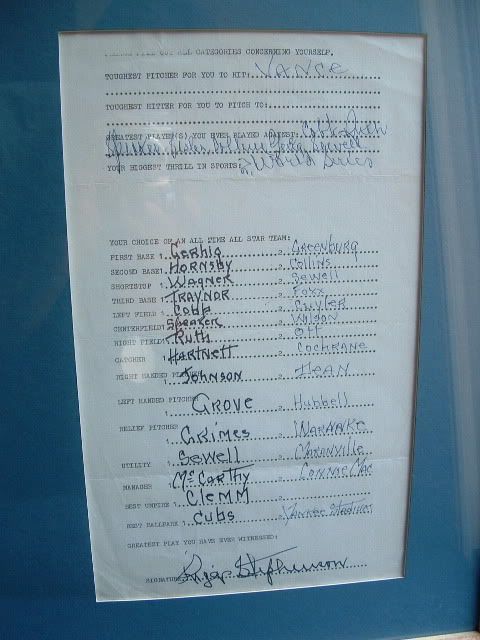 PLEASE FILL OUT ALL CATEGORIES CONCERNING YOURSELF.
TOUGHEST PITCHER FOR YOU TO HIT: VANCE
TOUGHEST HITTER FOR YOU TO PITCH TO:
GREATEST PLAYER(S) YOU EVER PLAYED AGAINST: Cobb Ruth
Speaker Sewell
YOUR BIGGEST THRILL IN SPORTS: World Series
YOUR CHOICE OF AN ALL TIME ALL STAR TEAM:
FIRST BASE 1. Gerhig 2. Greenburg
SECOND BASE 1. HORNSBY 2. Collins
SHORTSTOP 1. WAGNER 2. Sewell
THIRD BASE 1. TRAYNOR 2. Foxx
LEFT FIELD 1. Cobb 2. Cuyler
CENTERFIELD 1. Speaker 2. Wilson
RIGHT FIELD 1. Ruth 2. Ott
CATCHER 1. HARTNETT 2. COCHRANE
RIGHT HANDED PITCHER 1. Johnson 2. DEAN
LEFT HANDED PITCHER 1. GROVE 2. Hubbell
RELIEF PITCHER 1. GRIMES 2. WARNAKE
UTILITY 1. Sewell 2. Maranville
MANAGER 1. McCarthy 2. Connie Mac
BEST UMPIRE 1. Clemm 2.
BEST BALLPARK 1. Cubs 2. Yankee Stadium
GREATEST PLAY YOU HAVE EVER WITNESSED:
SIGNATURE: Riggs Stephenson